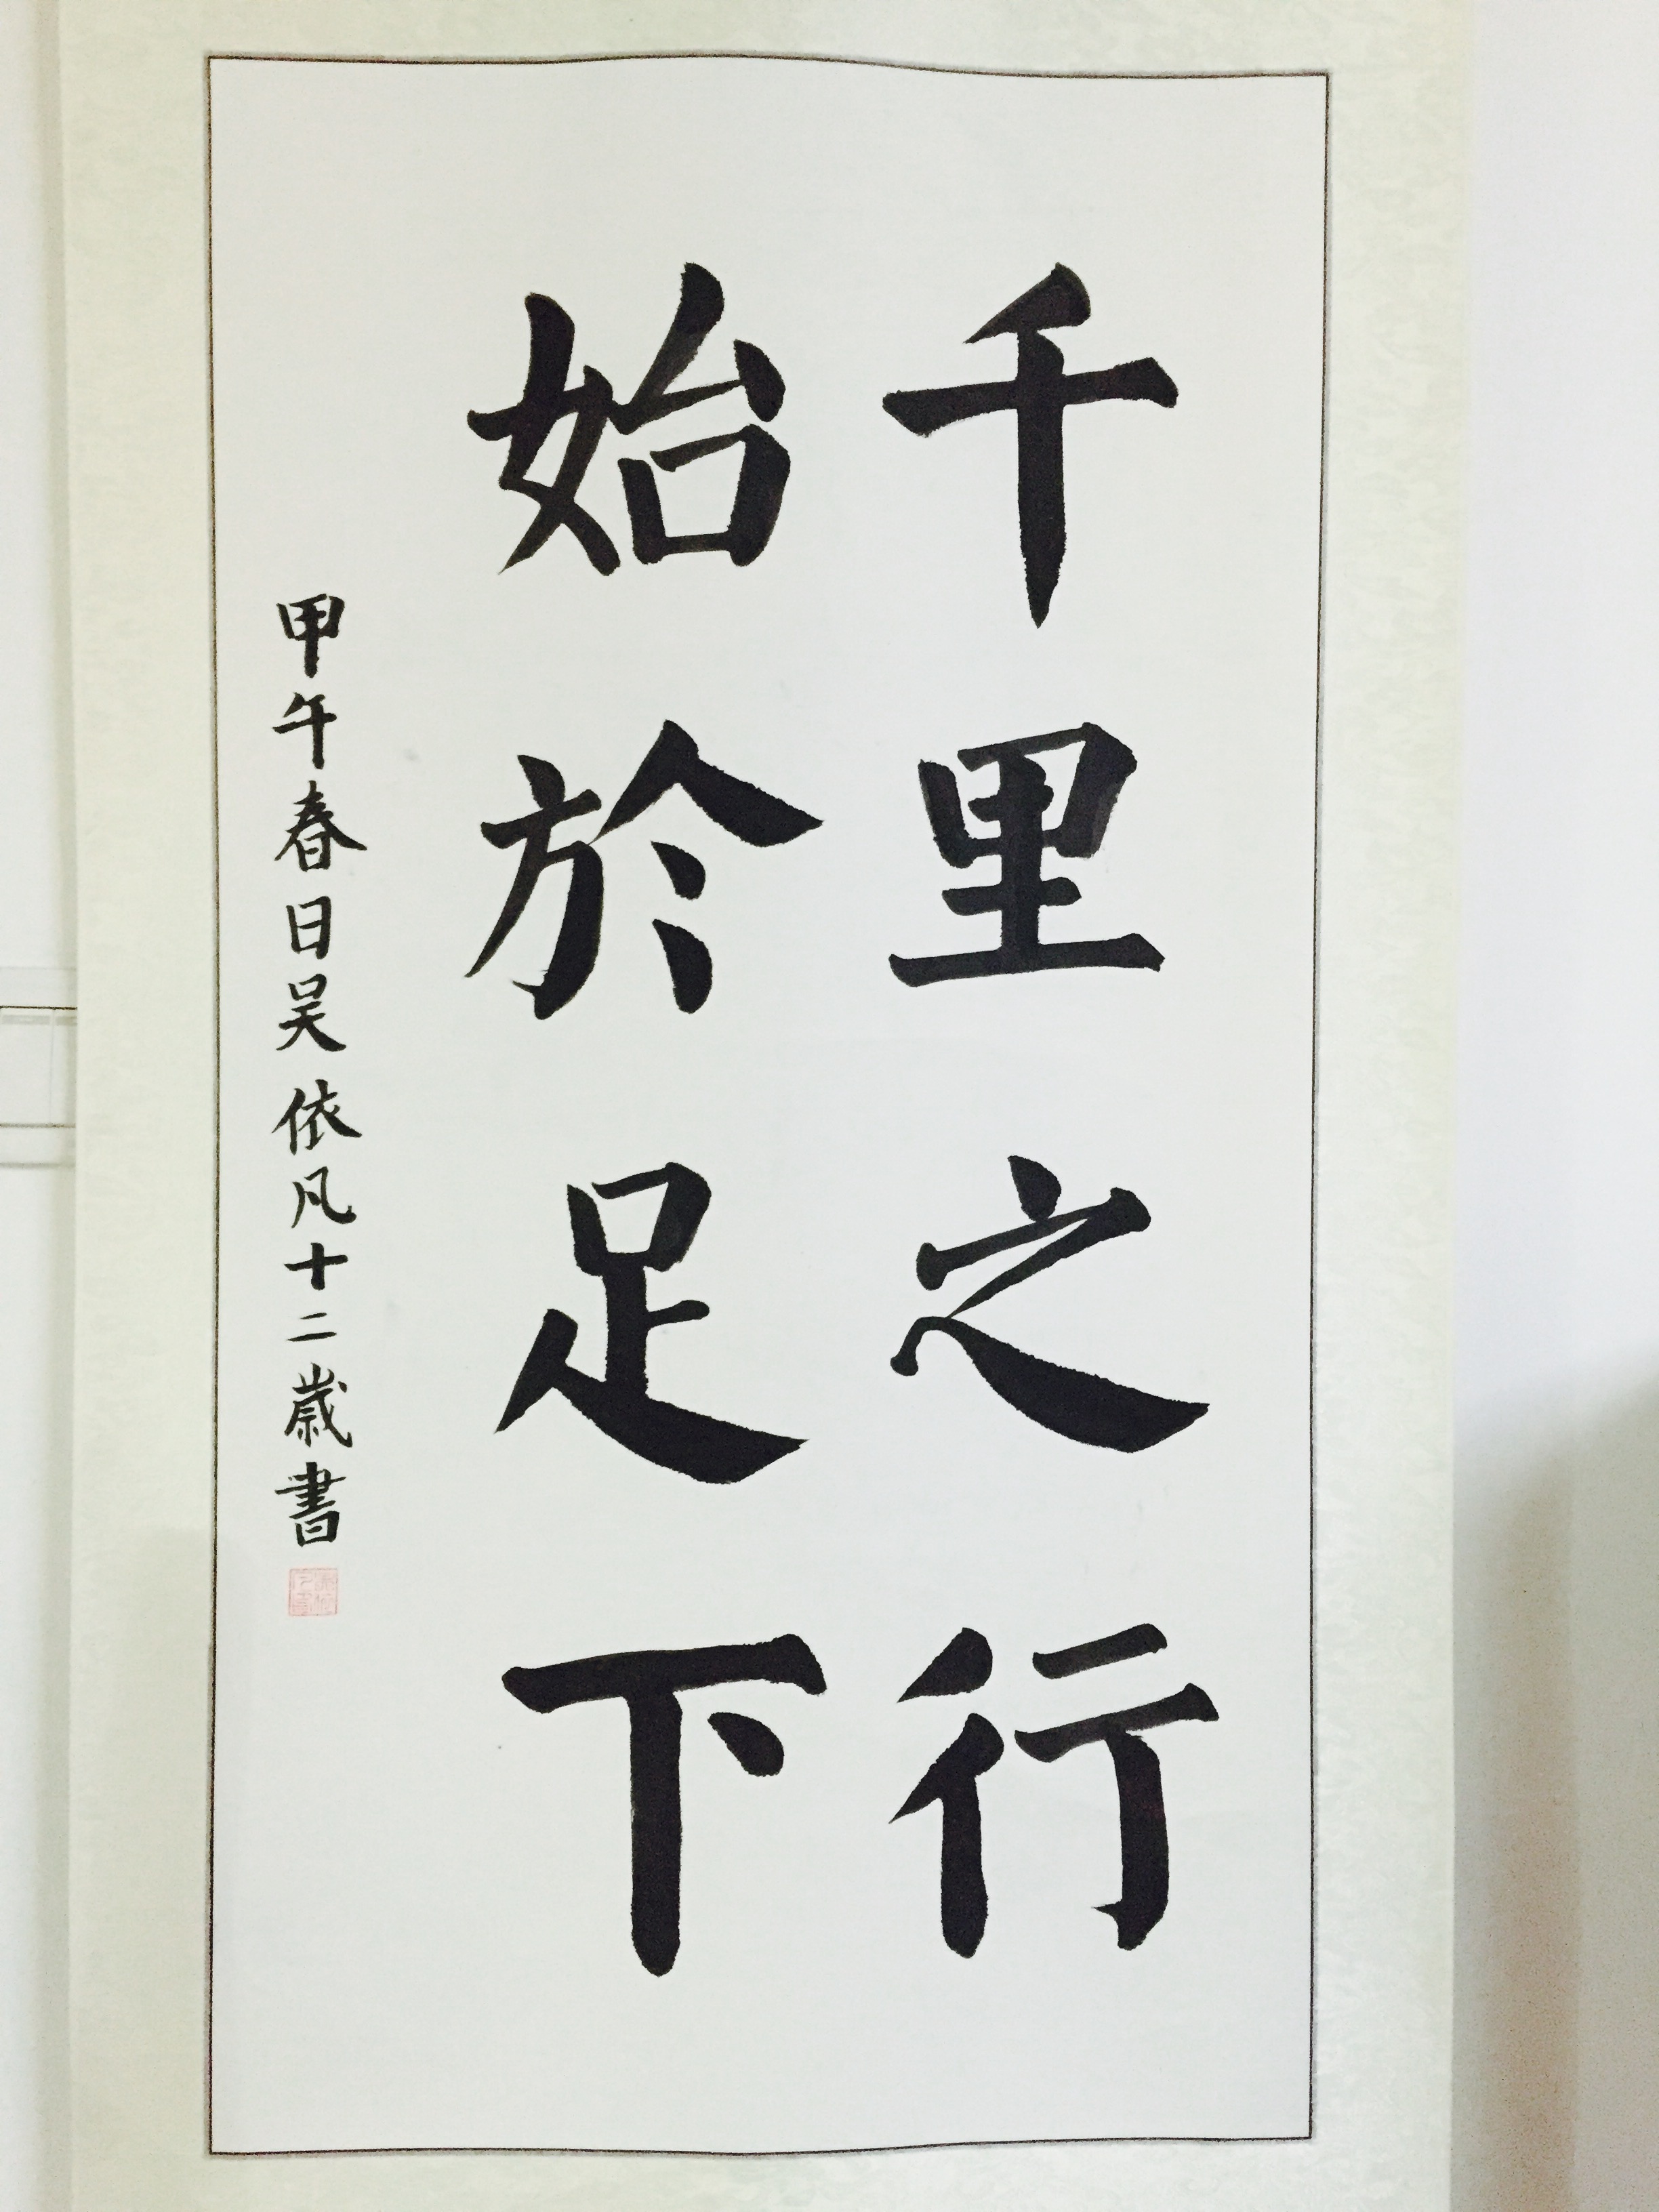 千里之行
始於足下
甲午春日吴依凡十二歲書